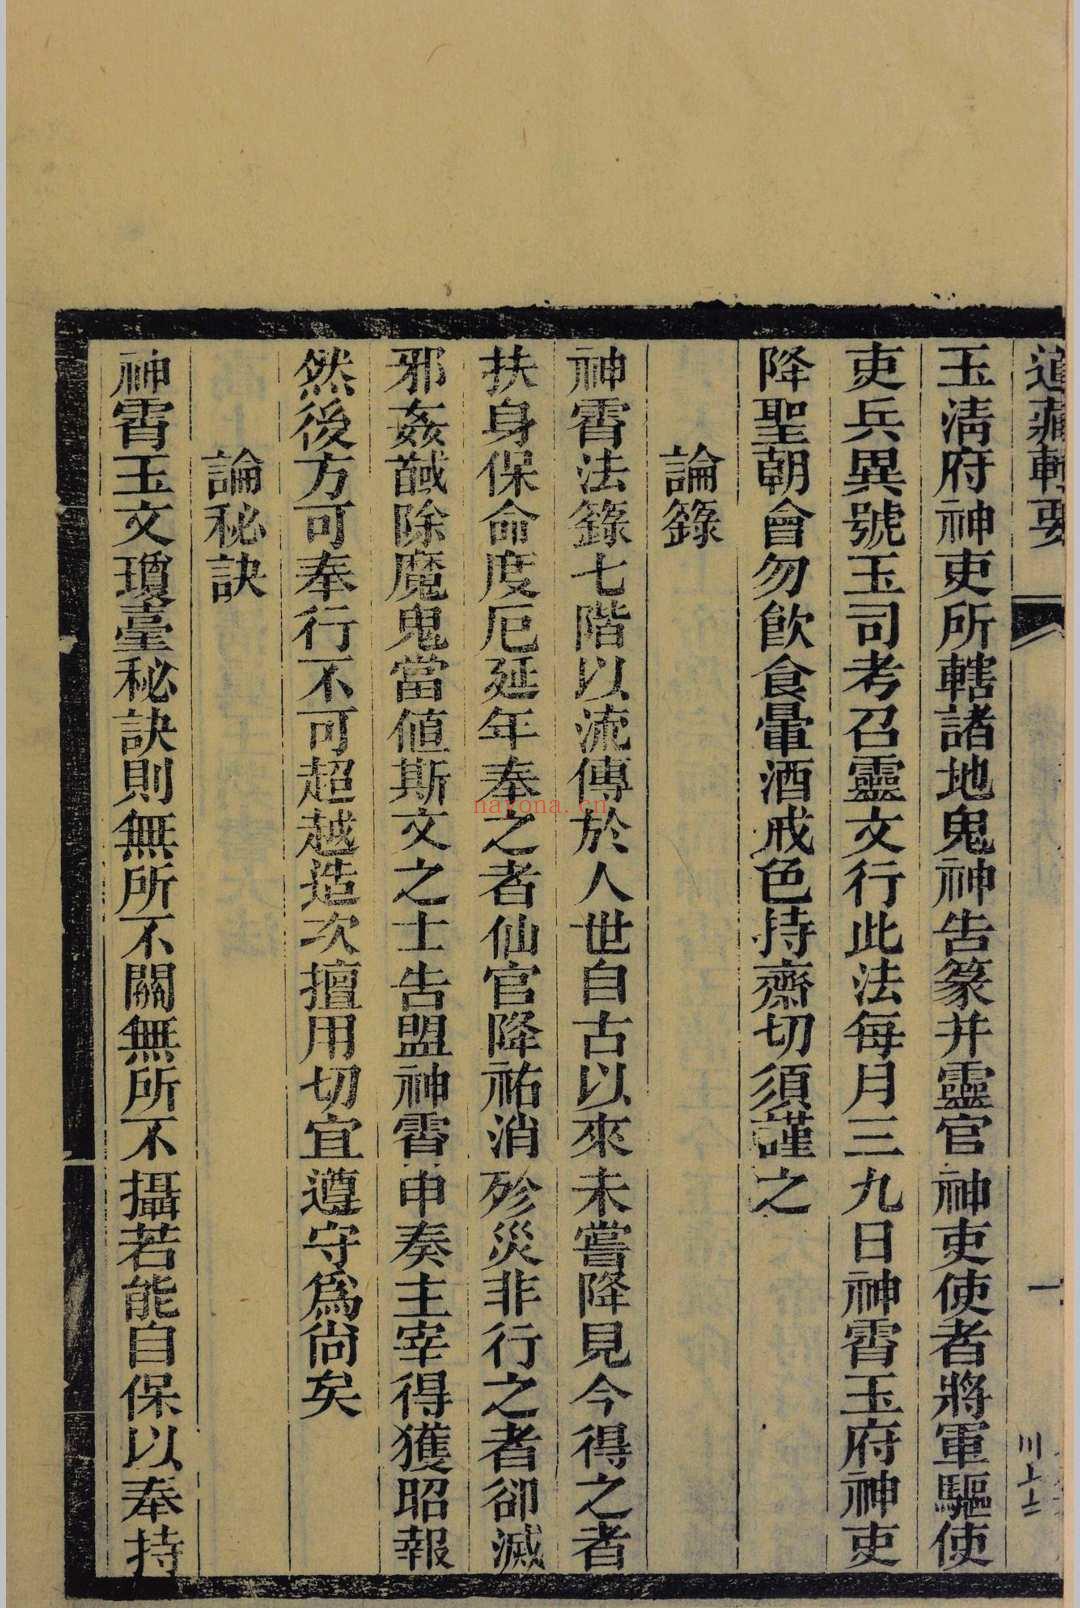 道藏輯要
一
玉淸府神吏所轄諸地鬼神告篆并靈官神吏使者將軍驅使
吏兵異號玉司考召靈文行此法每月三九日神霄玉府神吏
降聖朝會勿飮食葷酒戒色持齋切須謹之
論籙
神霄法籙七階以流傳於人世自古以來未嘗降見今得之者
扶身保命度厄延年奉之者仙官降祐消殄災非行之者卻滅
邪姦馘除魔鬼當値斯文之士告盟神霄申奏主宰得獲昭報
然後方可奉行不可超越造次擅用切宜遵守爲尙矣
論秘訣
神霄玉文瓊臺秘訣則無所不關無所不攝若能自保以奉持
nayona.cn